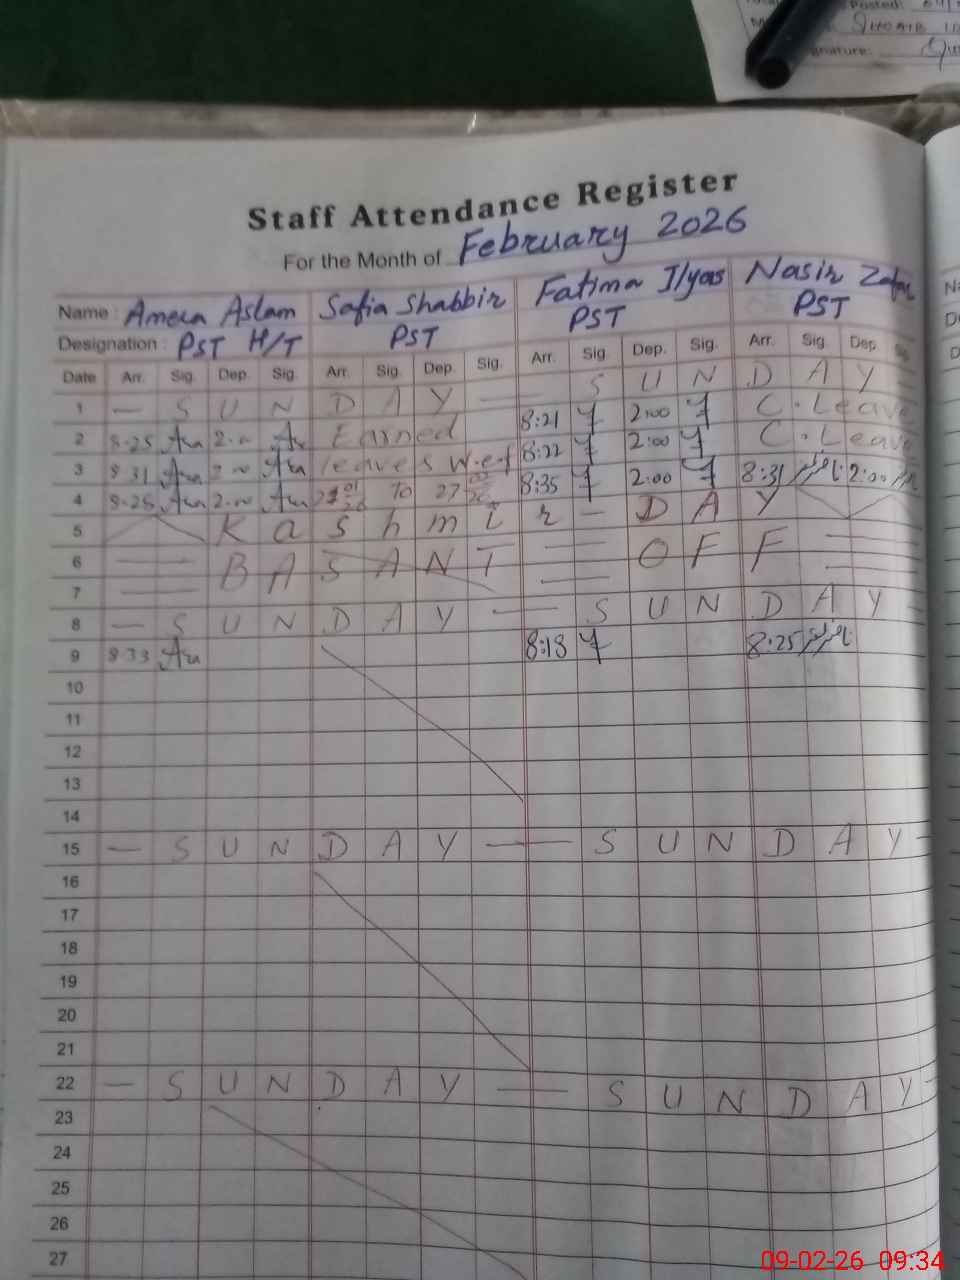 Posted:
SHOAIB
Signature:
Staff Attendance Register
For the Month of February 2026
Name : Amera Aslam Safia Shabbir Fatima Ilyas Nasir Zafar
Designation : PST H/T PST PST PST
Date Arr. Sig. Dep. Sig. Arr. Sig. Dep. Sig. Arr. Sig Dep. Sig. Arr. Sig. Dep Sig.
1 — S U N D A Y — S U N D A Y
2 8-25 2-00 Earned 8:21 2:00 C. Leave
3 8 31 2-00 leaves w.e.f 8:22 2:00 C. Leave
4 8-25 2-00 To 27 8:35 2:00 8:31 2:00
5 K a s h m i r - D A Y
6 B A S A N T O F F
7
8 — S U N D A Y — S U N D A Y
9 8-33 8:18 8:25
10
11
12
13
14
15 — S U N D A Y — S U N D A Y -
16
17
18
19
20
21
22 — S U N D A Y — S U N D A Y -
23
24
25
26
27
09-02-26 09:34